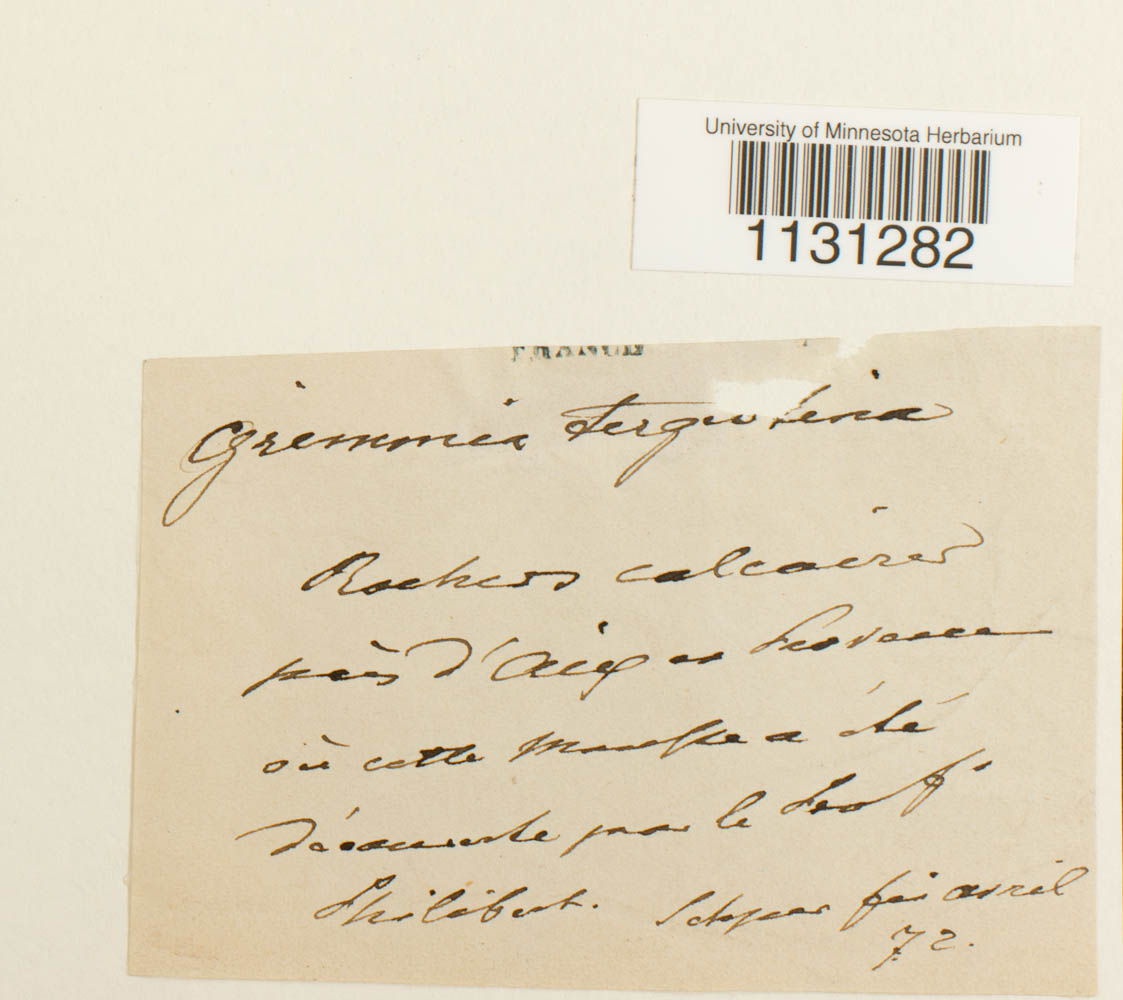 University of Minnesota Herbarium
1131282
FRANCE
Grimmia tergestina
Rochers calcaires
près d'Aix en Provence
où cette Mousse a été
découverte par le Prof.
Philibert. Schper fin avril
72.